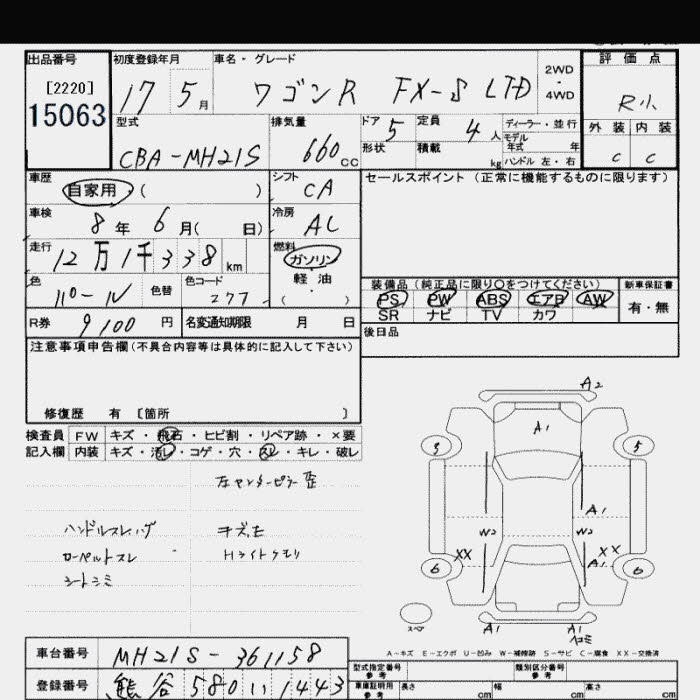 出品番号 初度登録年月 車名・グレード 評価点
[2220]
15063
17 5月 ワゴンR FX-S LTD 2WD・4WD R小
型式 排気量 ドア 定員 ディーラー・並行 外装 内装
CBA-MH21S 660cc 5 4人 モデル年式 年 C C
形状 積載 kg ハンドル 左・右
車歴 シフト セールスポイント (正常に機能するものに限ります)
自家用 ( ) CA
車検 冷房
8年 6月( 日) AC
走行 燃料
12万1千338km ガソリン
軽油
( )
色 色替 色コード 装備品 (純正品に限り○をつけてください) 新車保証書
パール 277 PS PW ABS エアB AW 有・無
SR ナビ TV カワ
R券 9100円 名変通知期限 月 日 後日品
注意事項申告欄 (不具合内容等は具体的に記入して下さい)
修復歴 有 [箇所 ]
検査員 FW キズ・飛石・ヒビ割・リペア跡・×要
記入欄 内装 キズ・汚レ・コゲ・穴・スレ・キレ・破レ
左センターピラー歪
ハンドルスレ キズ,エ
Hライトクモリ
シートシミ
A2
A1
5 5
A1
W2 W2
XX XX
A1
6 6
スペア
A1 A1
ヘコミ
A-キズ E-エクボ U-凹み W-補修跡 S-サビ C-腐食 XX-交換済
車台番号 MH21S-361158
型式指定番号 類別区分番号
登録番号 熊谷 580 い 1443
車庫証明用参考 長さ cm 幅 cm 高さ cm